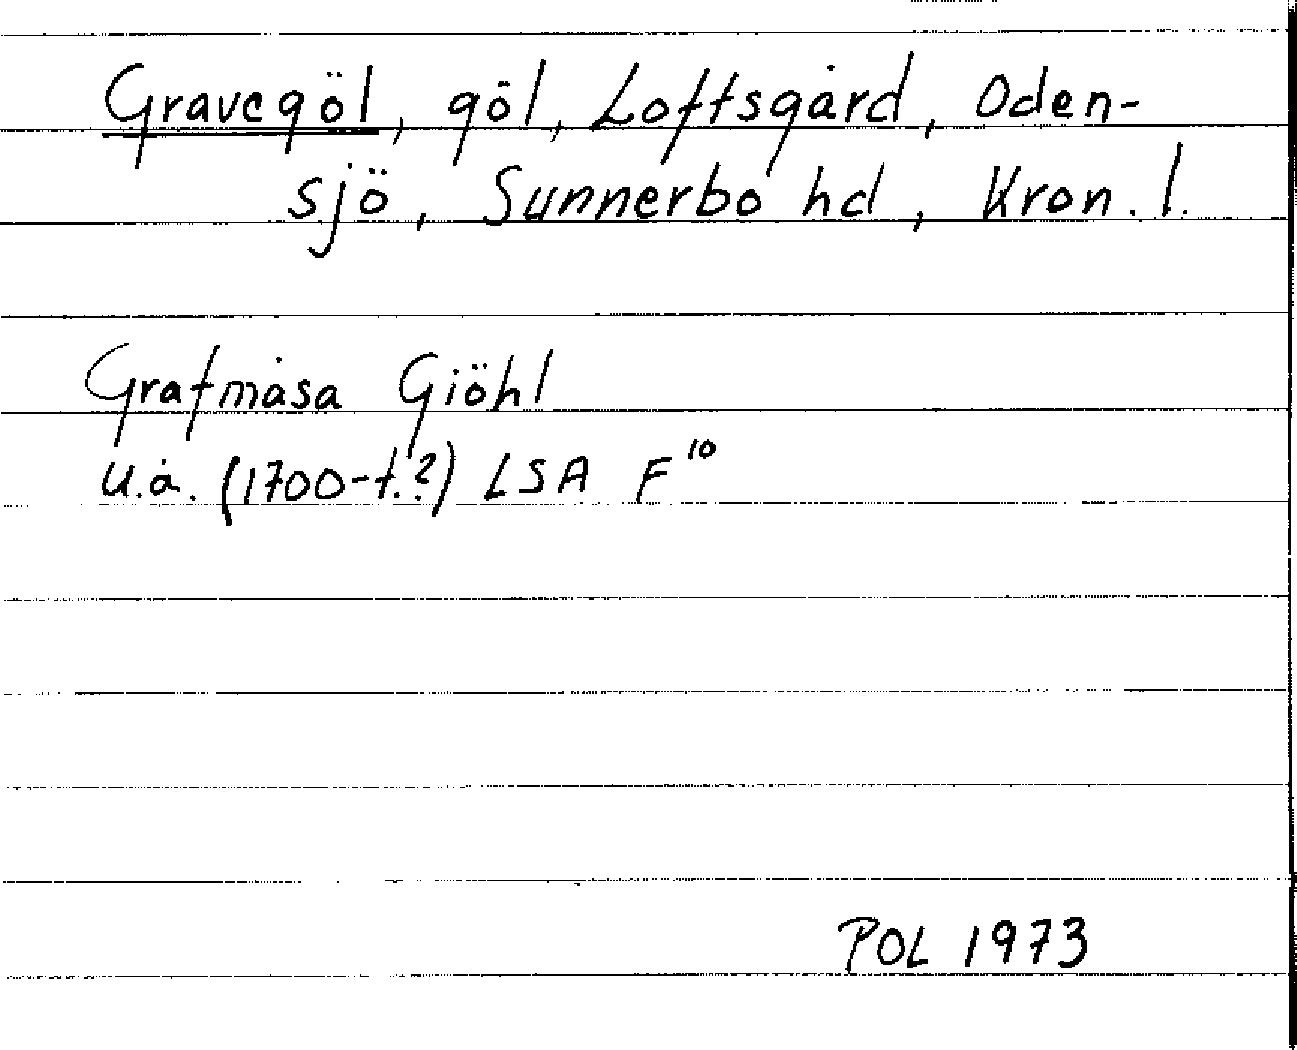 Gravegöl, göl, Loftsgård, Oden-
sjö, Sunnerbo hd, Kron. l.
Grafmåsa Giöhl
u.å. (1700-t.?) LSA F¹⁰
POL 1973